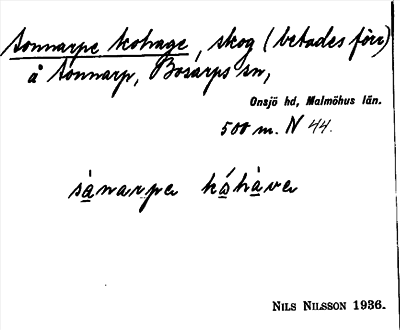 Sonnarps kohage, skog (betades förr)
å Sonnarp, Bosarps sn,
Onsjö hd, Malmöhus län.
500 m. N 44.
sànarpa káhàva
NILS NILSSON 1936.